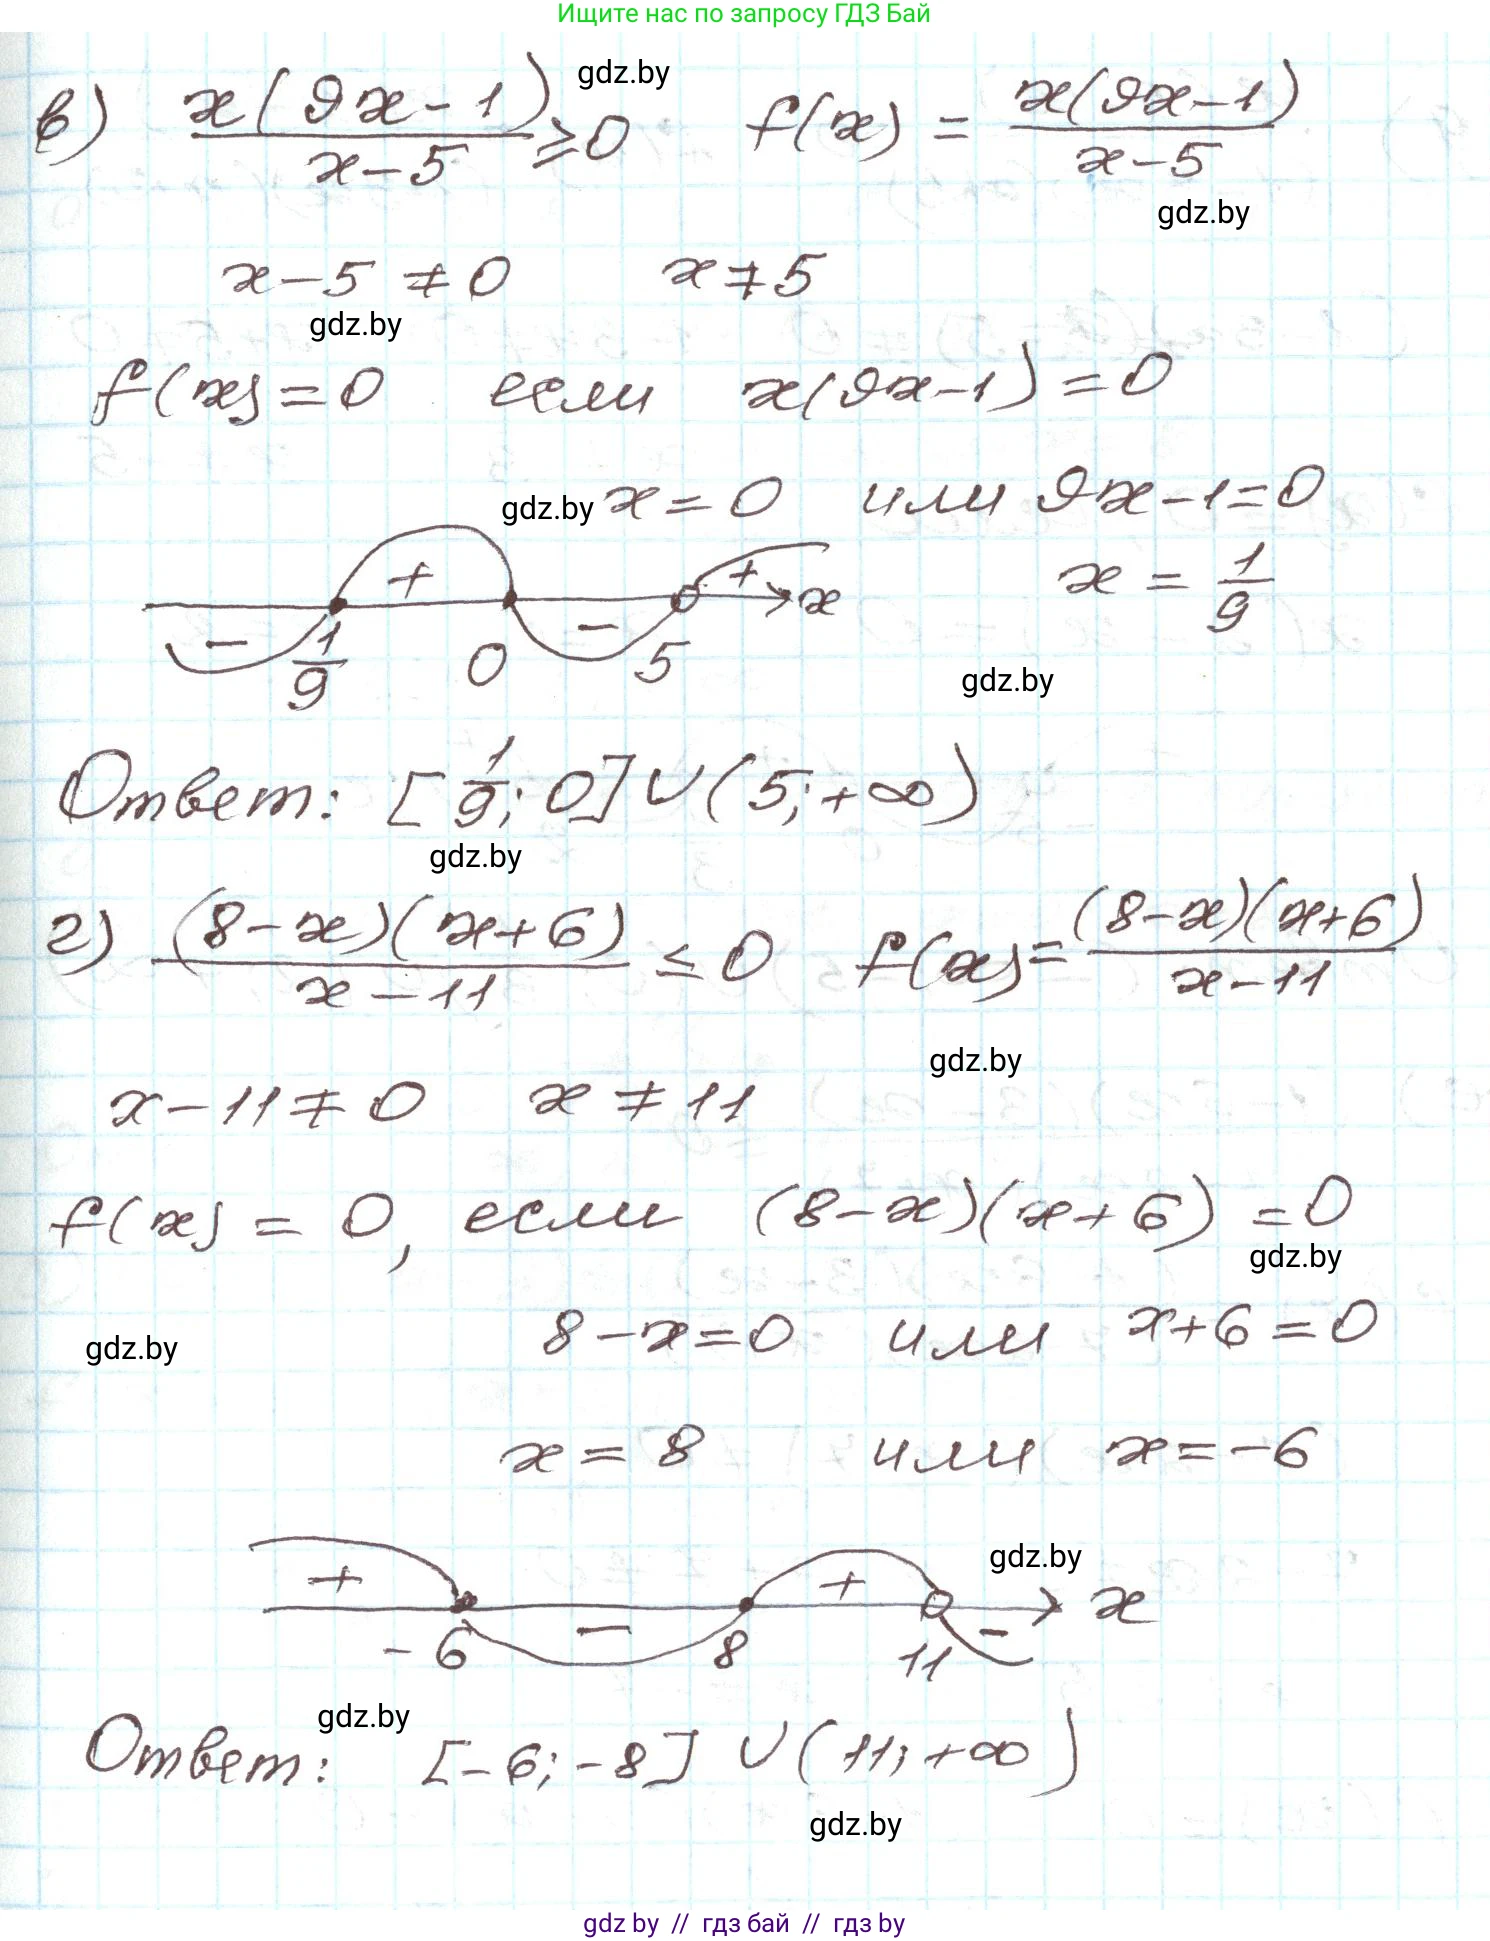 Ищите нас по запросу ГДЗ Бай
в) x(9x-1)/(x-5) ≥ 0 f(x) = x(9x-1)/(x-5)
gdz.by
gdz.by
x-5 ≠ 0 x ≠ 5
gdz.by
f(x) = 0 если x(9x-1) = 0
gdz.by x = 0 или 9x-1=0
- + - + x x = 1/9
1/9 0 5
gdz.by
Ответ: [1/9; 0] ∪ (5; +∞)
gdz.by
г) (8-x)(x+6)/(x-11) ≤ 0 f(x) = (8-x)(x+6)/(x-11)
gdz.by
x-11 ≠ 0 x ≠ 11
f(x) = 0, если (8-x)(x+6) = 0
gdz.by
8-x=0 или x+6=0
gdz.by
x = 8 или x = -6
gdz.by
+ - + - x
-6 8 11
gdz.by
Ответ: [-6; -8] ∪ (11; +∞)
gdz.by
gdz by // гдз бай // гдз by